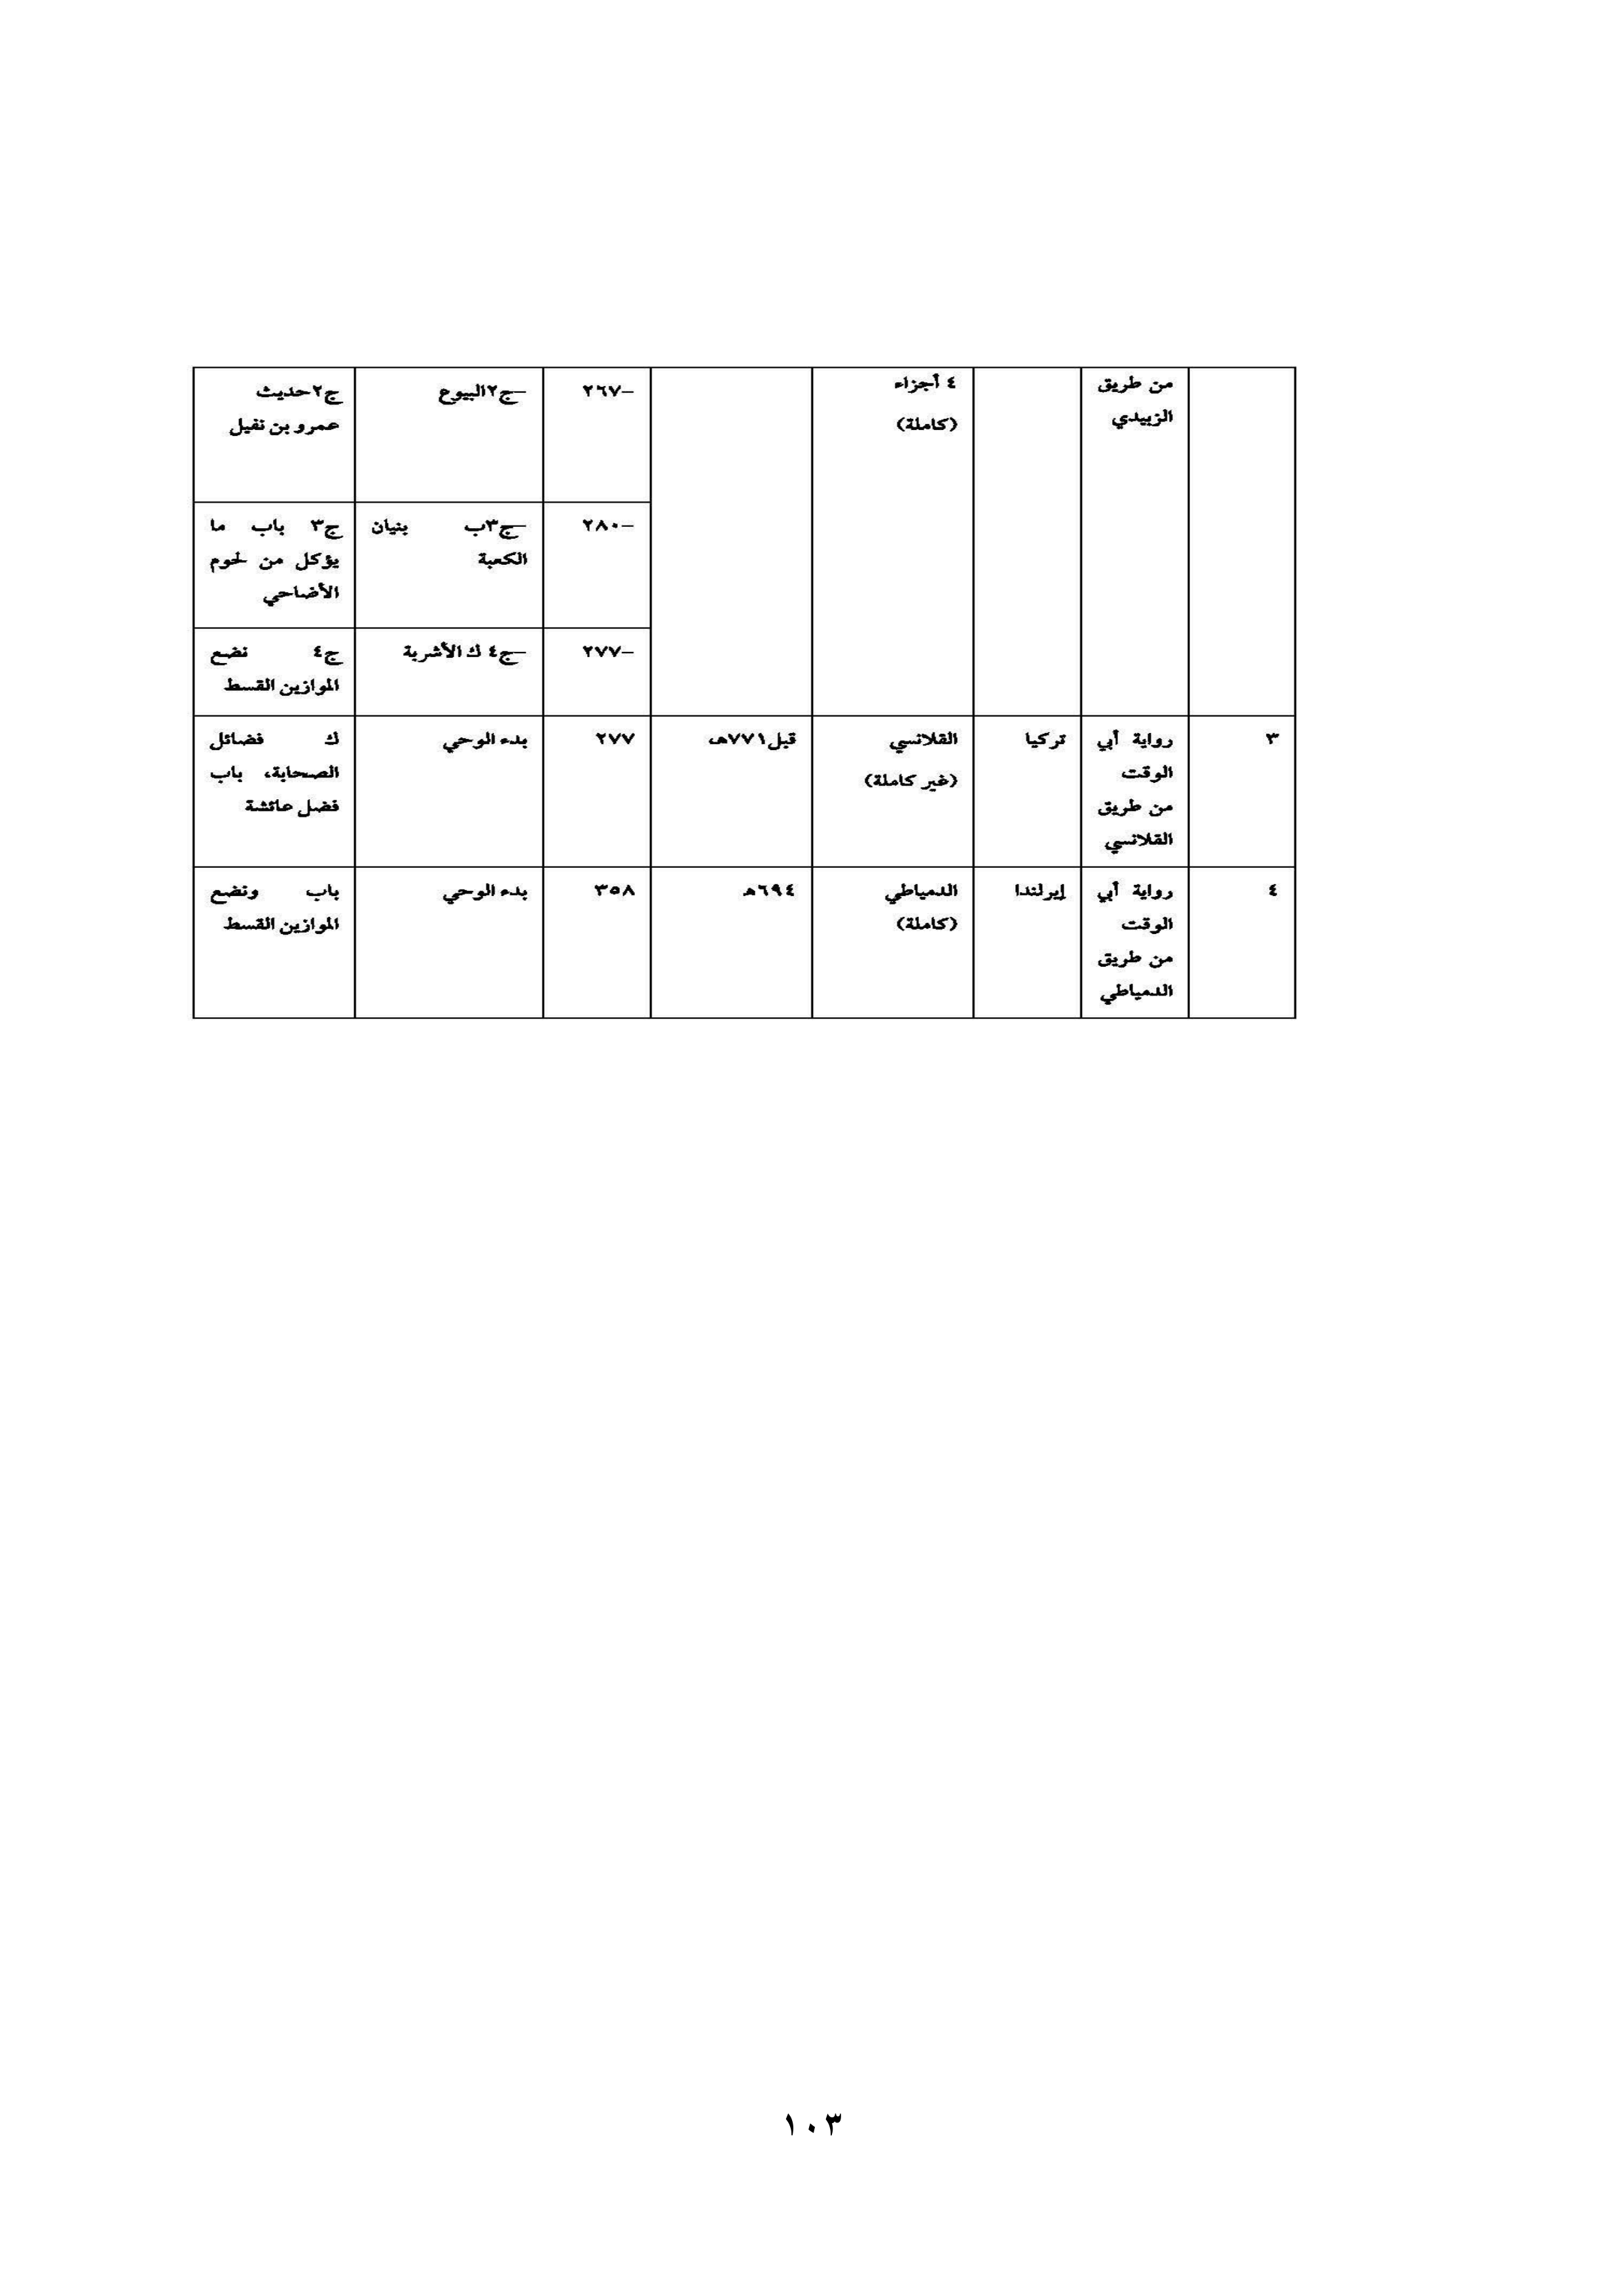 من طريق
الزبيدي
٤ أجزاء
(كاملة)
–٢٦٧
–ج٢البيوع
ج٢حديث
عمرو بن نفيل
–٢٨٠
–ج٣ب بنيان
الكعبة
ج٣ باب ما
يؤكل من لحوم
الأضاحي
–٢٧٧
–ج٤ ك الأشربة
ج٤ نضع
الموازين القسط
٣
رواية أبي
الوقت
من طريق
القلانسي
تركيا
القلانسي
(غير كاملة)
قبل٧٧١هـ
٢٧٧
بدء الوحي
ك فضائل
الصحابة، باب
فضل عائشة
٤
رواية أبي
الوقت
من طريق
الدمياطي
إيرلندا
الدمياطي
(كاملة)
٦٩٤هـ
٣٥٨
بدء الوحي
باب ونضع
الموازين القسط
١٠٣